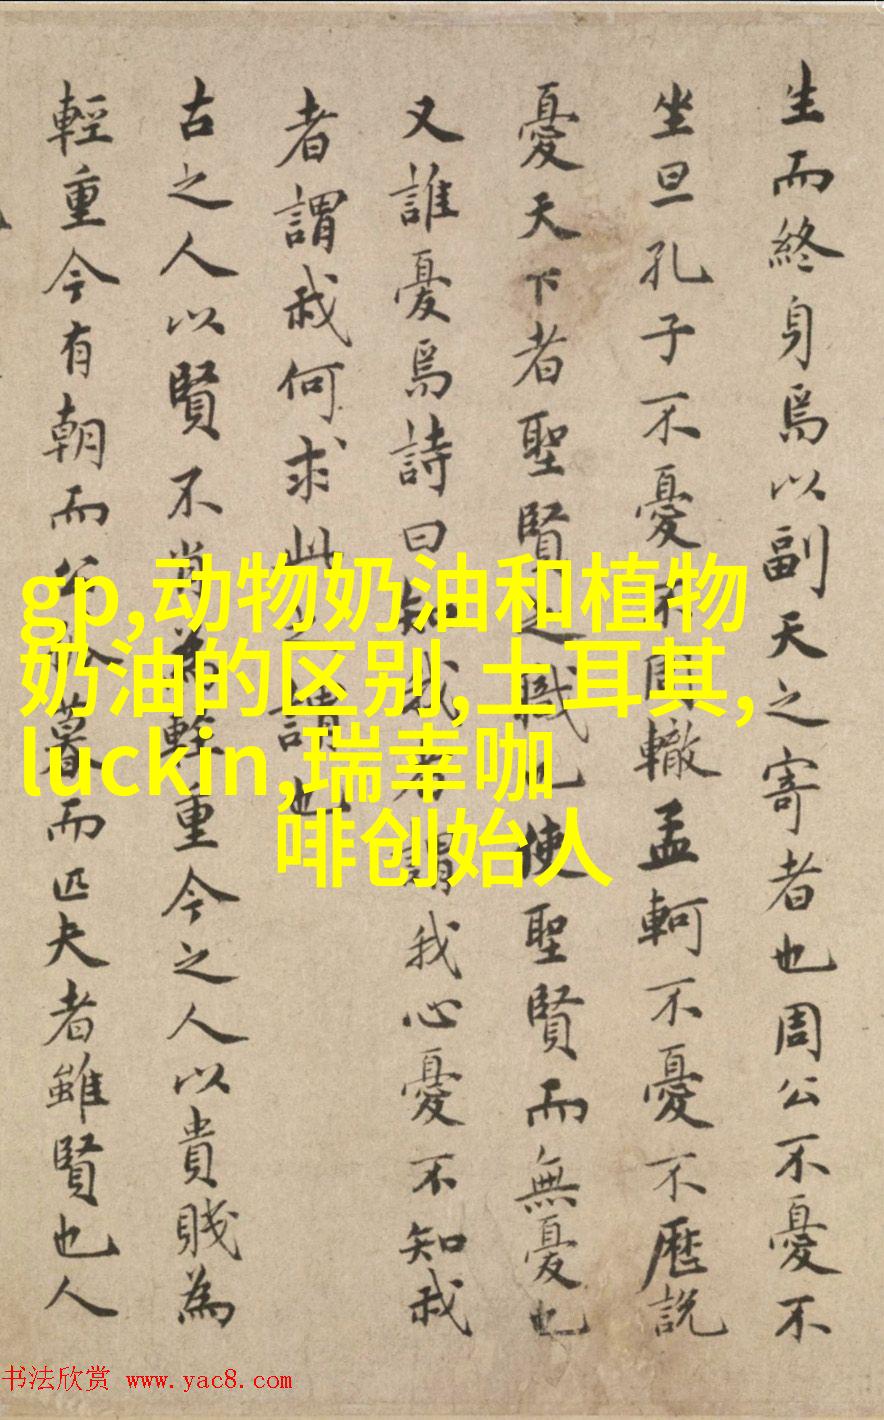 生而終身焉以副天之寄者也周公不憂不
坐旦孔子不憂不周轍孟軻不憂不歷說
憂天下者聖賢之職也使聖賢而無憂也
又誰憂焉詩曰知我者謂我心憂不知我
者謂我何求此之謂也
古之人以賢不肖為輕重今之人以貴賤為
輕重今有朝而公暮而匹夫者雖賢也人
gp,动物奶油和植物
奶油的区别,土耳其,
luckin,瑞幸咖
啡创始人
书法欣赏 www.yac8.com